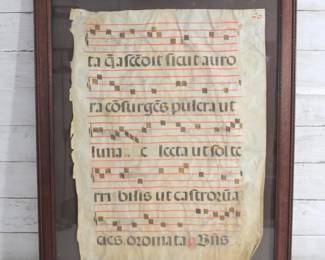 ta q̃ ascẽdit sicut auro
ra cõsurgẽs pulcra ut
luna e lecta ut sol te
rri bilis ut castrorũ a
cies ordinata Vñs